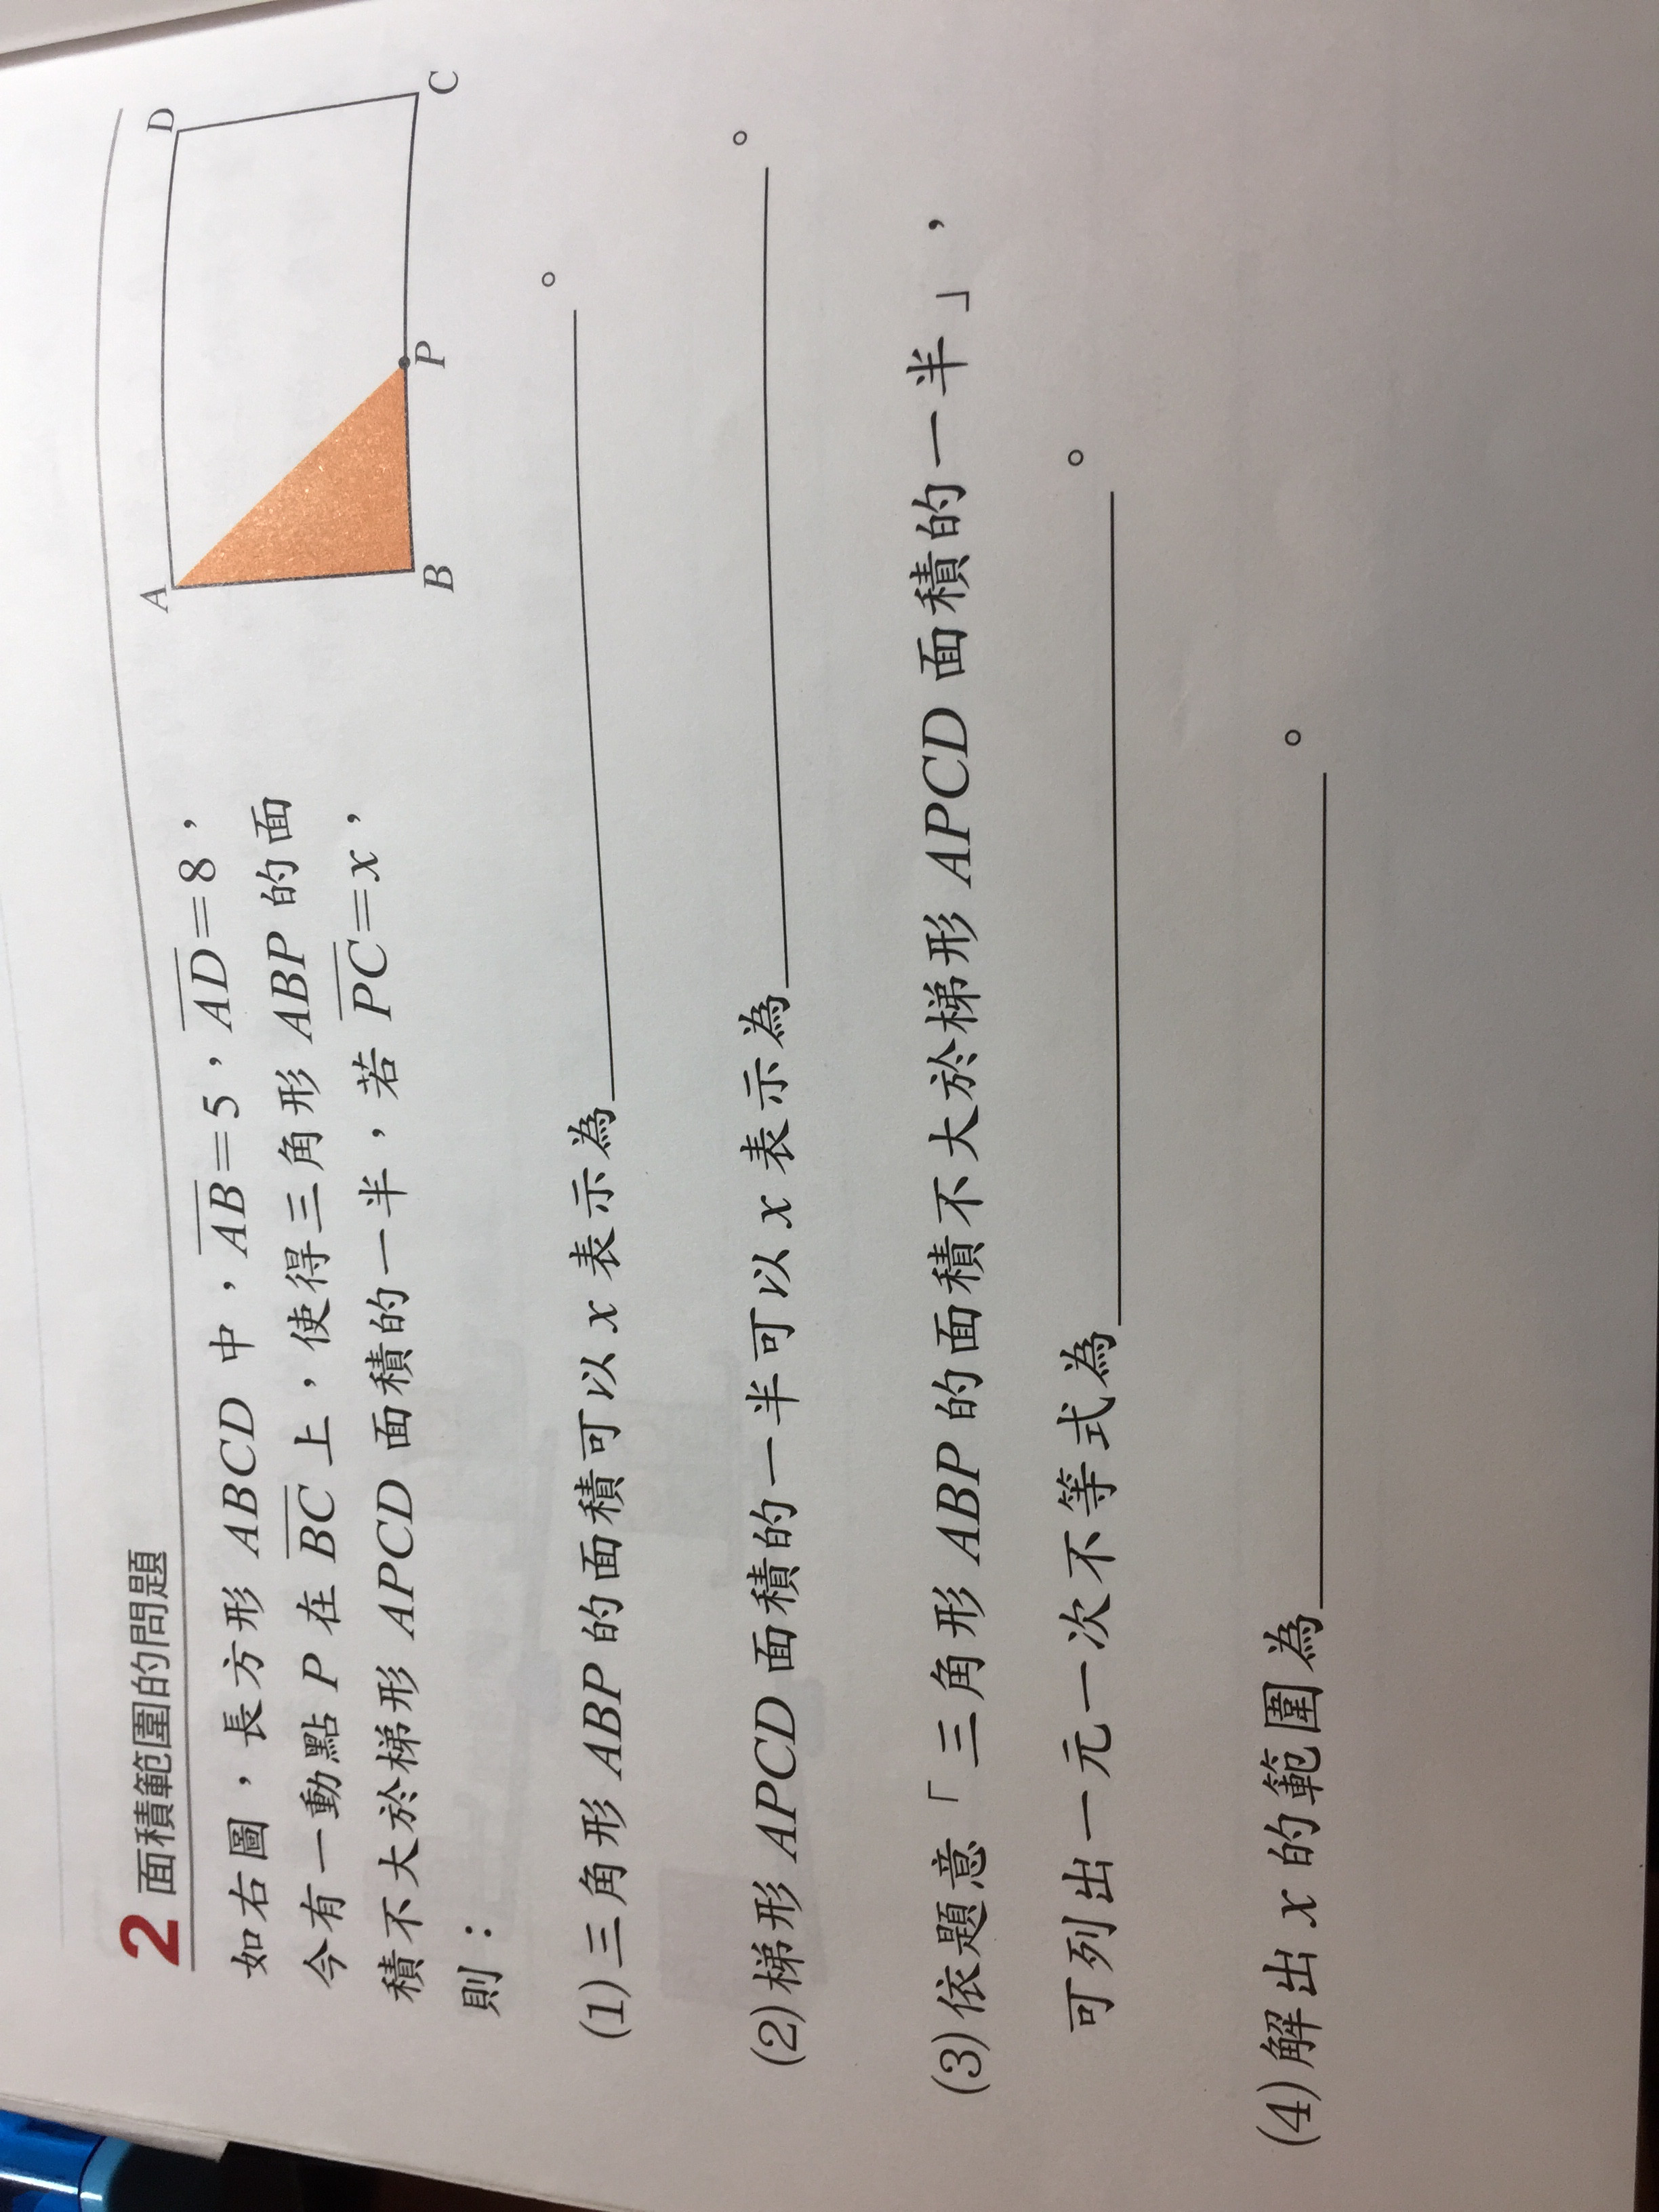 2 面積範圍的問題
如右圖，長方形 ABCD 中，AB=5，AD=8，
今有一動點 P 在 BC 上，使得三角形 ABP 的面
積不大於梯形 APCD 面積的一半，若 PC=x，
則：
A
D
B
P
C
(1)三角形 ABP 的面積可以 x 表示為＿＿＿＿＿＿＿＿。
(2)梯形 APCD 面積的一半可以 x 表示為＿＿＿＿＿＿＿＿。
(3)依題意「三角形 ABP 的面積不大於梯形 APCD 面積的一半」，
可列出一元一次不等式為＿＿＿＿＿＿＿＿。
(4)解出 x 的範圍為＿＿＿＿＿＿＿＿。